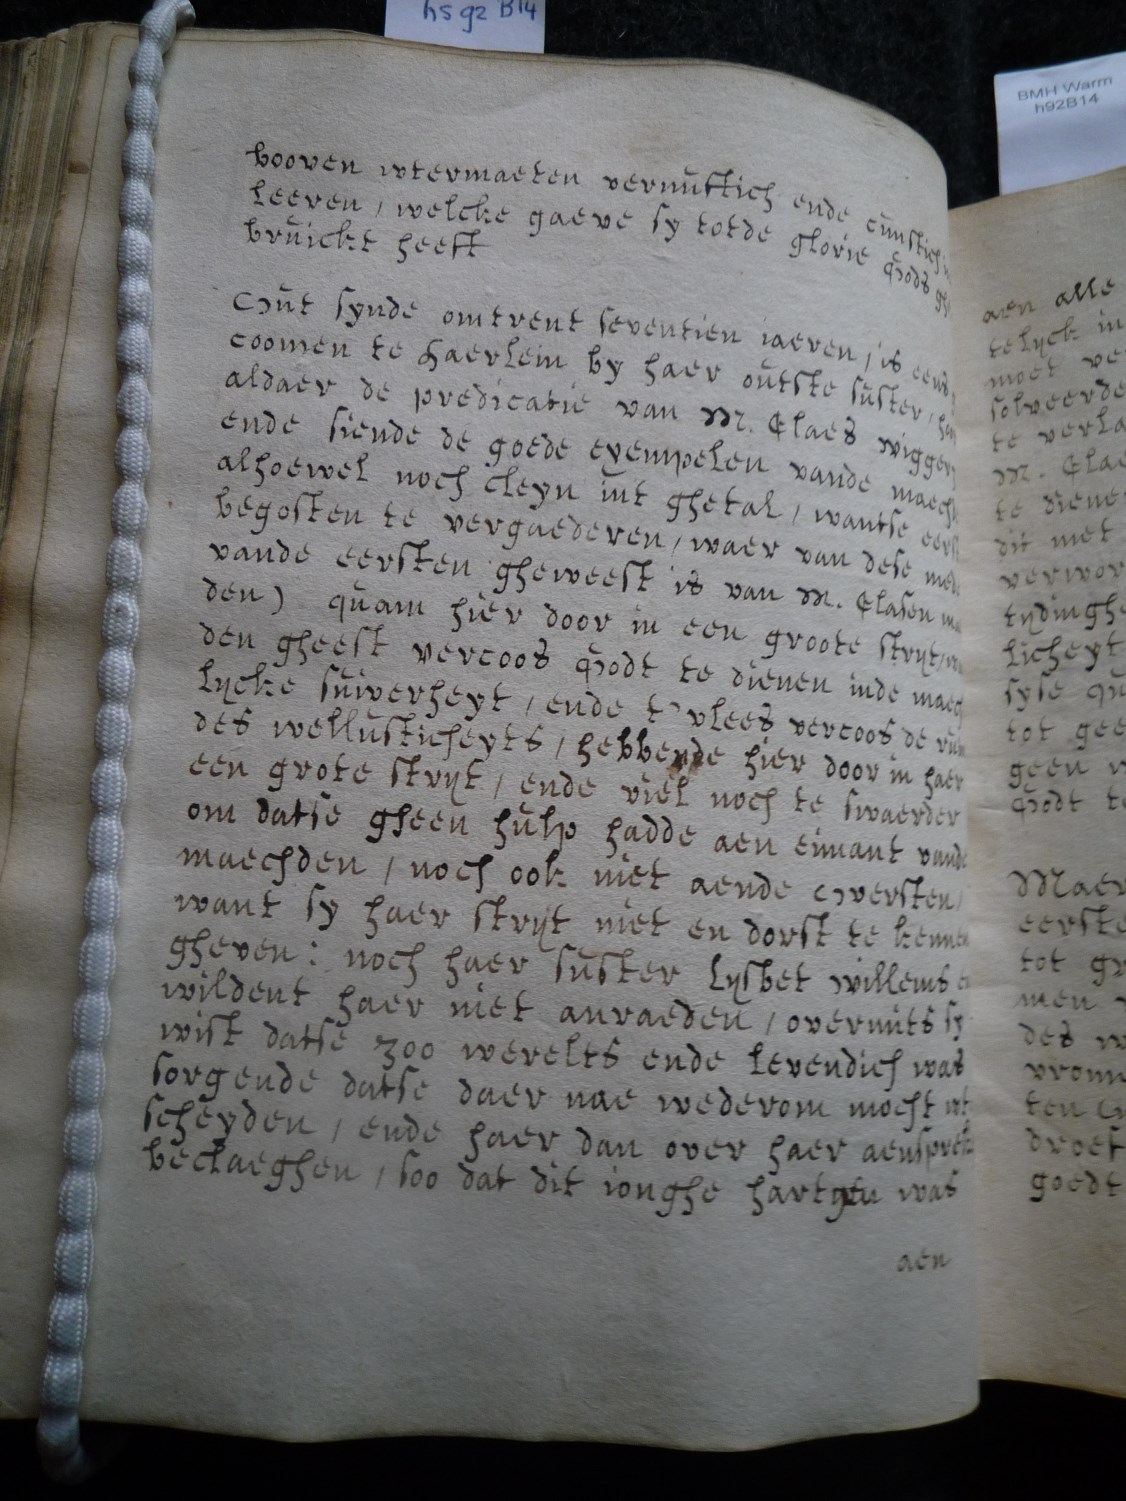 hs 92 B14
BMH Warm
h92B14
booven wtermaeten vernuftich ende cunstich
leeren / welcke gaeve sy totde glorie Godts
bruickt heeft
Out synde omtrent seventien iaeren / is eens
coomen te Haerlem by haer outste suster /
aldaer de predicatie van M. Claes wigger
ende siende de goede exempelen vande maech
alhoewel noch cleyn int ghetal / wantse eerst
begosten te vergaederen / waer van dese me
vande eersten gheweest is van M. Clasen
den) quam hier door in een groote stryt /
den gheest vercoos Godt te dienen inde maech
lycke suiverheyt / ende t' vlees vercoos de
des wellusticheyts / hebbende hier door in haer
een grote stryt / ende viel noch te swaerder
om datse gheen hulp hadde aen eimant vande
maechden / noch ook niet aende Oversten /
want sy haer stryt niet en dorst te kennen
gheven : noch haer suster Lysbet willems en
wildent haer niet anraeden / overmits sy
wist datse zoo werelts ende levendich was
sorgende datse daer nae wederom mocht wt
scheyden / ende haer dan over haer aenspreken
beclaeghen / soo dat dit ionghe hartgen was
aen
aen alle
telyck in
moet
solveerde
te verla
M. Clae
te diene
dit met
verwor
tydinghe
licheyt
syse qu
tot gee
geen
Godt te
Maer
eerste
tot gr
men
des
vrom
ten
droef
goedt